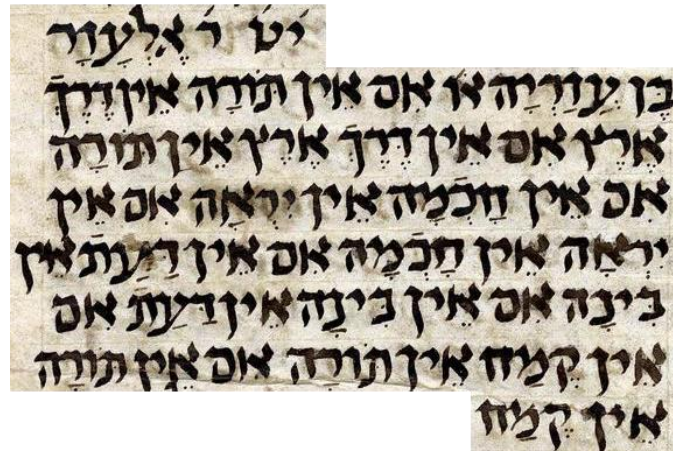 יט ר אֶלְעָזָר
בֶּן עֲזַרְיָה אוֹ אִם אֵין תּוֹרָה אֵין דֶּרֶךְ
אֶרֶץ אִם אֵין דֶּרֶךְ אֶרֶץ אֵין תּוֹרָה
אִם אֵין חָכְמָה אֵין יִרְאָה אִם אֵין
יִרְאָה אֵין חָכְמָה אִם אֵין דַּעַת אֵין
בִּינָה אִם אֵין בִּינָה אֵין דַּעַת אִם
אֵין קֶמַח אֵין תּוֹרָה אִם אֵין תּוֹרָה
אֵין קֶמַח